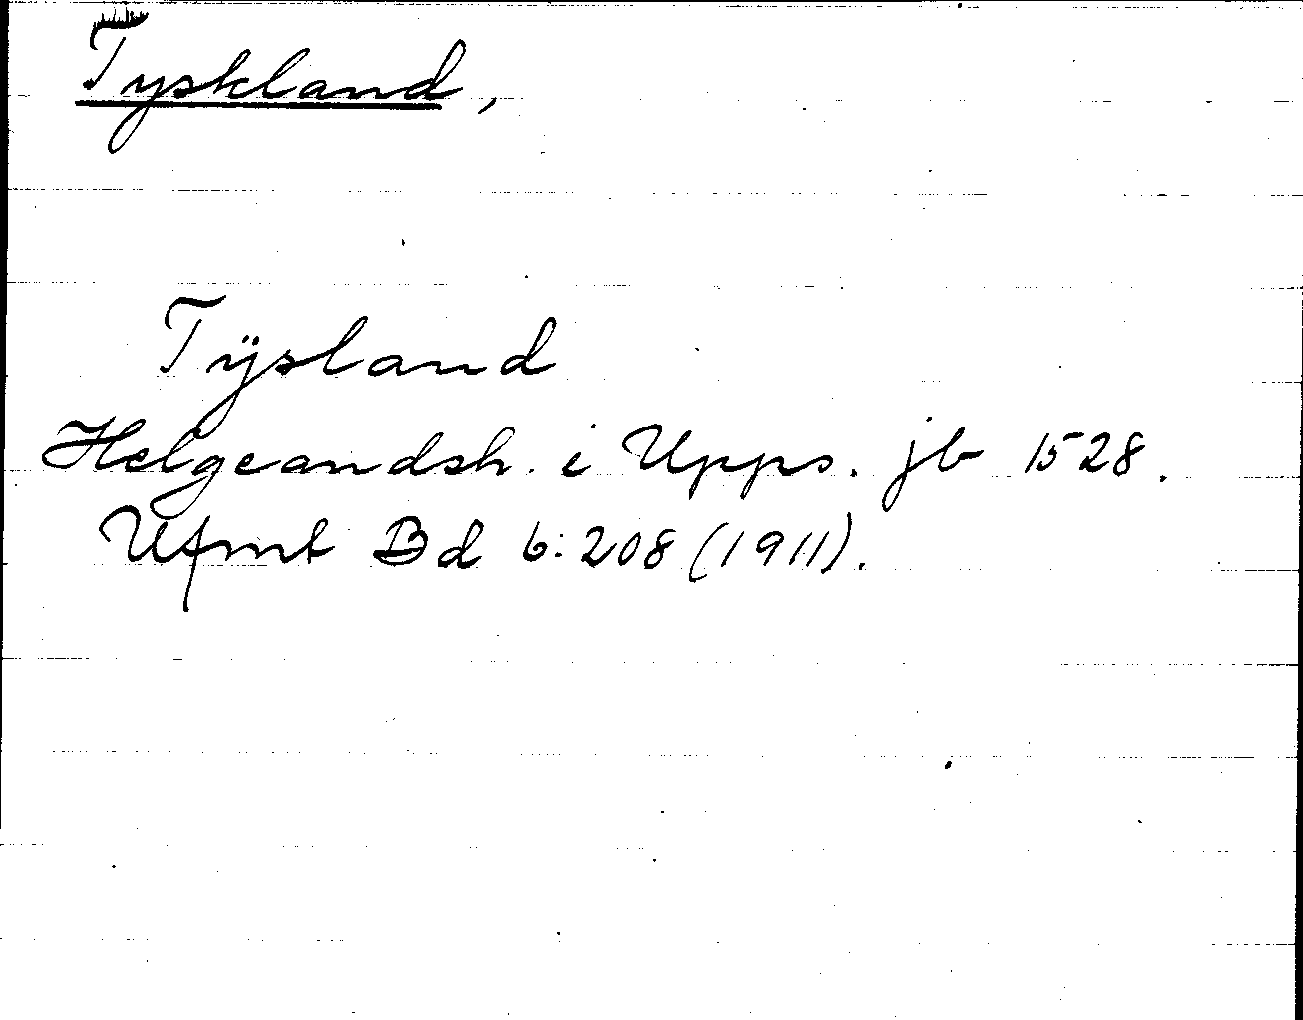 Tyskland,
Tÿsland
Helgeandsh. i Upps. jb 1528.
Ufmt Bd 6:208 (1911).